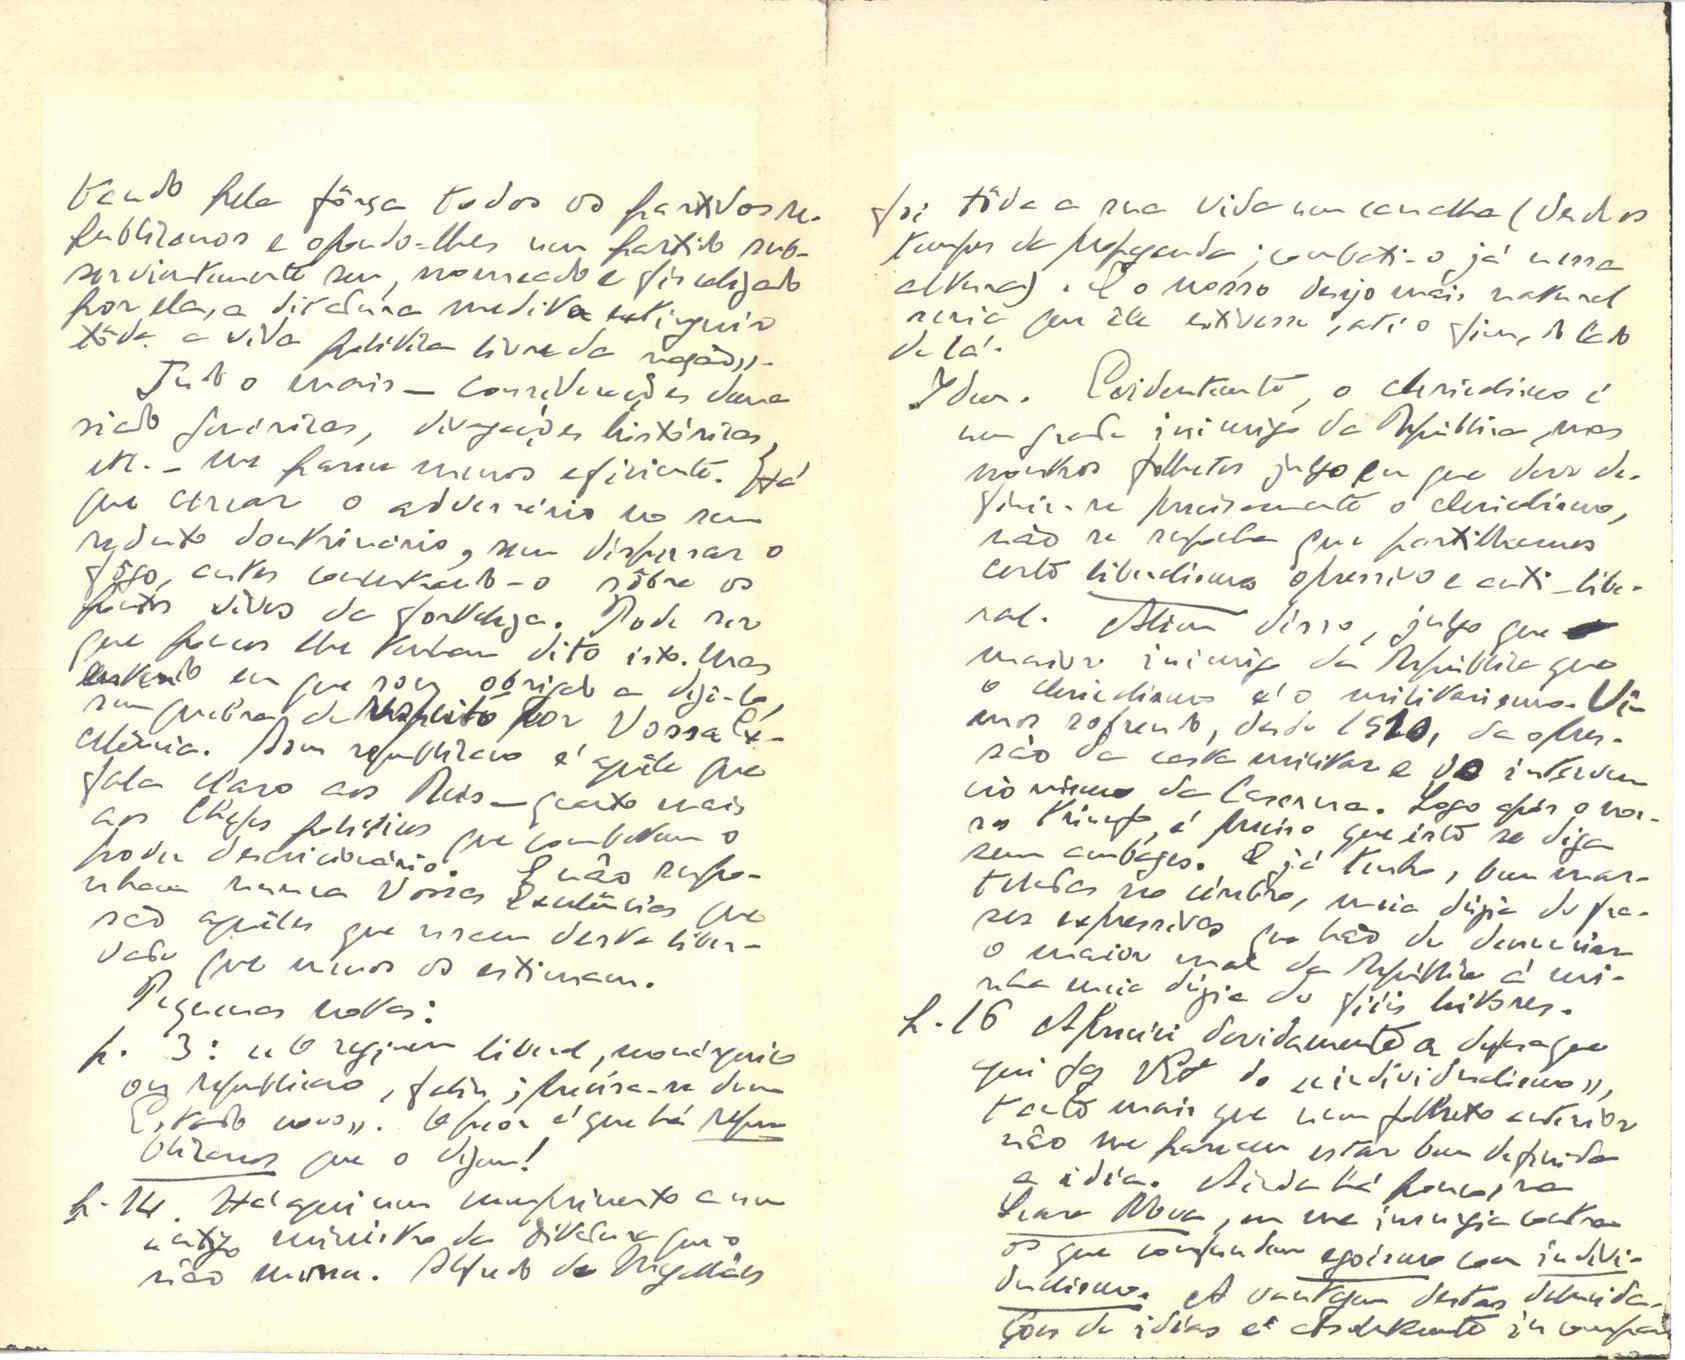 tando pela fôrça todos os partidos re-
publicanos e opondo-lhes um partido sub-
servientemente seu, nomeado e fiscalizado
por ela, a ditadura medita extinguir
tôda a vida política livre da nação».
Tudo o mais — considerações dema
siado genéricas, divagações históricas,
etc. — me parece menos eficiente. Há
que cercar o adversário no seu
reduto doutrinário, sem dispersar o
fôgo, antes concentrando-o sôbre os
pontos vivos da fortaleza. Pode ser
que poucos lhe tenham dito isto. Mas
entendo eu que sou obrigado a dizê-lo,
sem quebra de respeito por Vossa Ex-
celência. Bom republicano é aquêle que
fala claro aos Reis — quanto mais
aos Chefes políticos que combatem o
poder discricionário. E não supo-
nham nunca Vossas Excelências que
são aquêles que usam desta liber-
dade que menos os estimam.
Pequenas notas:
p. 3: «O regimen liberal, monárquico
ou republicano, faliu; precisa-se dum
Estado novo». O peor é que há repu
blicanos que o dizem!
p. 14. Há aqui um cumprimento a um
antigo ministro da Ditadura que o
não merece. Alfredo de Magalhães
foi tôda a sua vida um canalha (desde os
tempos da propaganda; combati-o já nessa
altura). E o nosso desejo mais natural
seria que êle estivesse, até o fim, do lado
de lá.
Idem. Evidentemente, o clericalismo é
um grande inimigo da República, mas
noutros folhetos julgo eu que deve de-
finir-se precisamente o clericalismo,
não se suponha que partilhamos
certo liberalismo opressivo e anti-libe-
ral. Além disso, julgo que
maior inimigo da República que
o clericalismo é o militarismo. Vi-
mos sofrendo, desde 1910, da opres-
são da casta militar e do interven
cionismo da Caserna. Logo após o nos-
so triunfo, é preciso que isto se diga
sem ambages. E já tenho, bem mar-
teladas no cérebro, meia dúzia de fra-
ses expressivas que hão de denunciar
o maior mal da República à mi-
nha meia dúzia de fiéis leitores.
p. 16 Apreciei devidamente a defesa que
aqui faz VEx.ª do «individualismo»,
tanto mais que num folheto anterior
não me parecem estar bem definida
a idéia. Ainda há pouco, na
Seara Nova, eu me insurgia contra
os que confundem egoismo com indivi-
dualismo. A vantagem destas delucida-
ções de idéias é absolutamente incompar